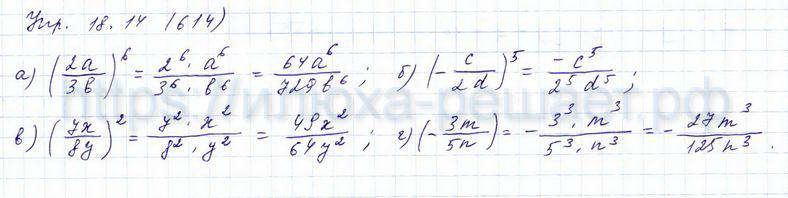 Упр. 18.14 (614)
а) (2a/3b)^6 = 2^6 · a^6 / 3^6 · b^6 = 64a^6 / 729b^6 ; б) (- c/2d)^5 = -c^5 / 2^5 d^5 ;
в) (7x/8y)^2 = y^2 · x^2 / 8^2 · y^2 = 49x^2 / 64y^2 ; г) (- 3m/5n) = - 3^3 · m^3 / 5^3 · n^3 = - 27m^3 / 125n^3 .
https://илюха-решает.рф